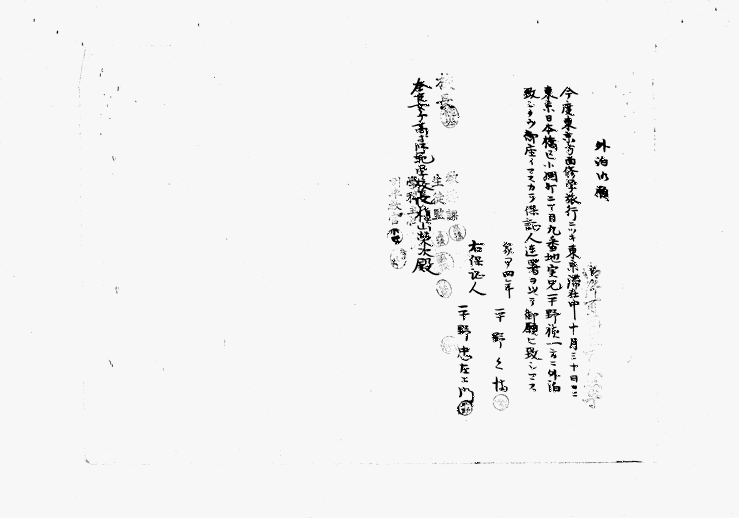 外泊御願
今度東京方面修学旅行ニツキ東京滞在中十月三十日ニ
東京日本橋区小網町二丁目九番地実兄平野禎一方ニ外泊
致シタウ御座イマスカラ保証人連署ヲ以テ御願ヒ致シマス
家甲四年
平野
右保証人
平野忠左エ門
校長
奈良女子高等師範学校長槇山栄次殿
生徒監